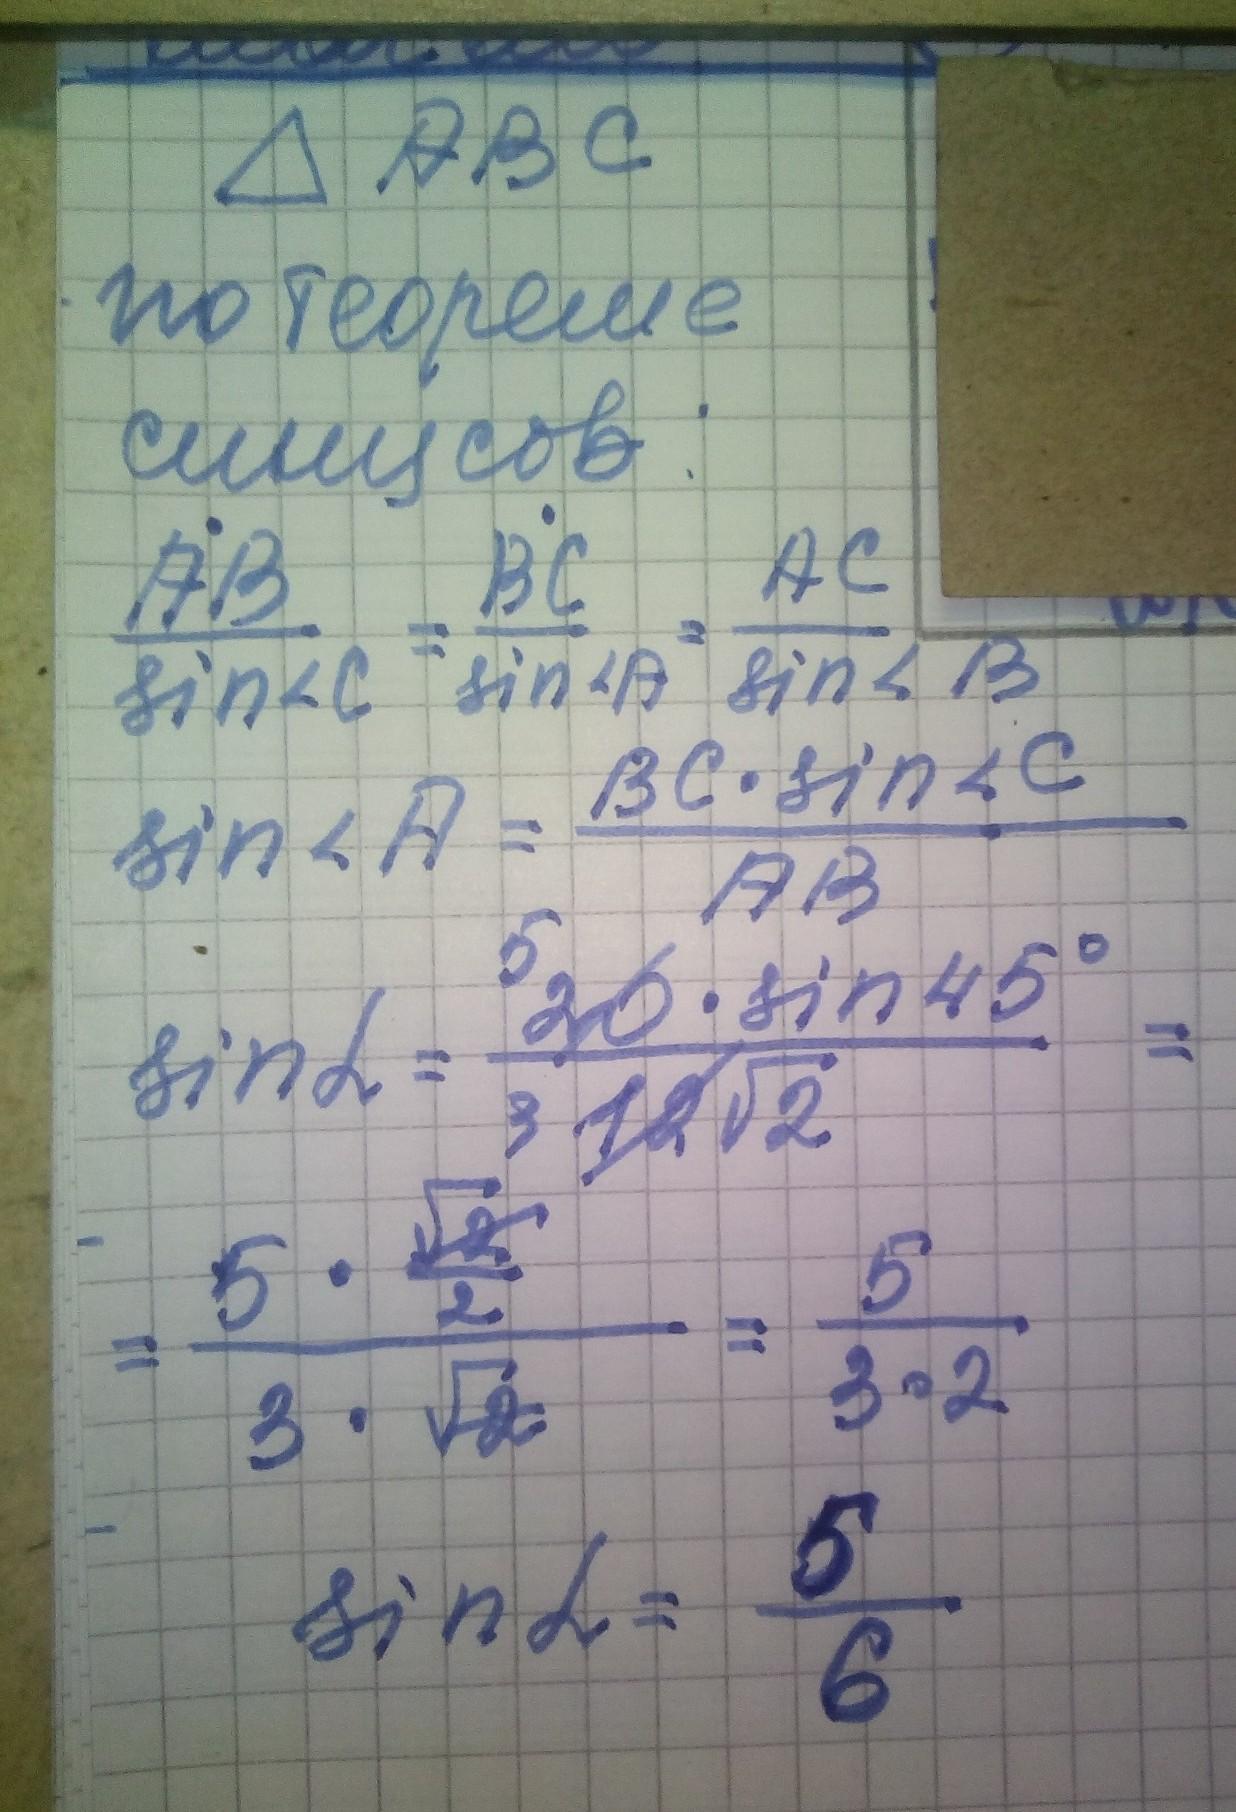 △ ABC
по теореме
синусов:
AB/sin∠C = BC/sin∠A = AC/sin∠B
sin∠A = BC·sin∠C/AB
sin α = 5 20·sin 45°/3 12√2 =
= 5·√2/2/3·√2 = 5/3·2
sin α = 5/6